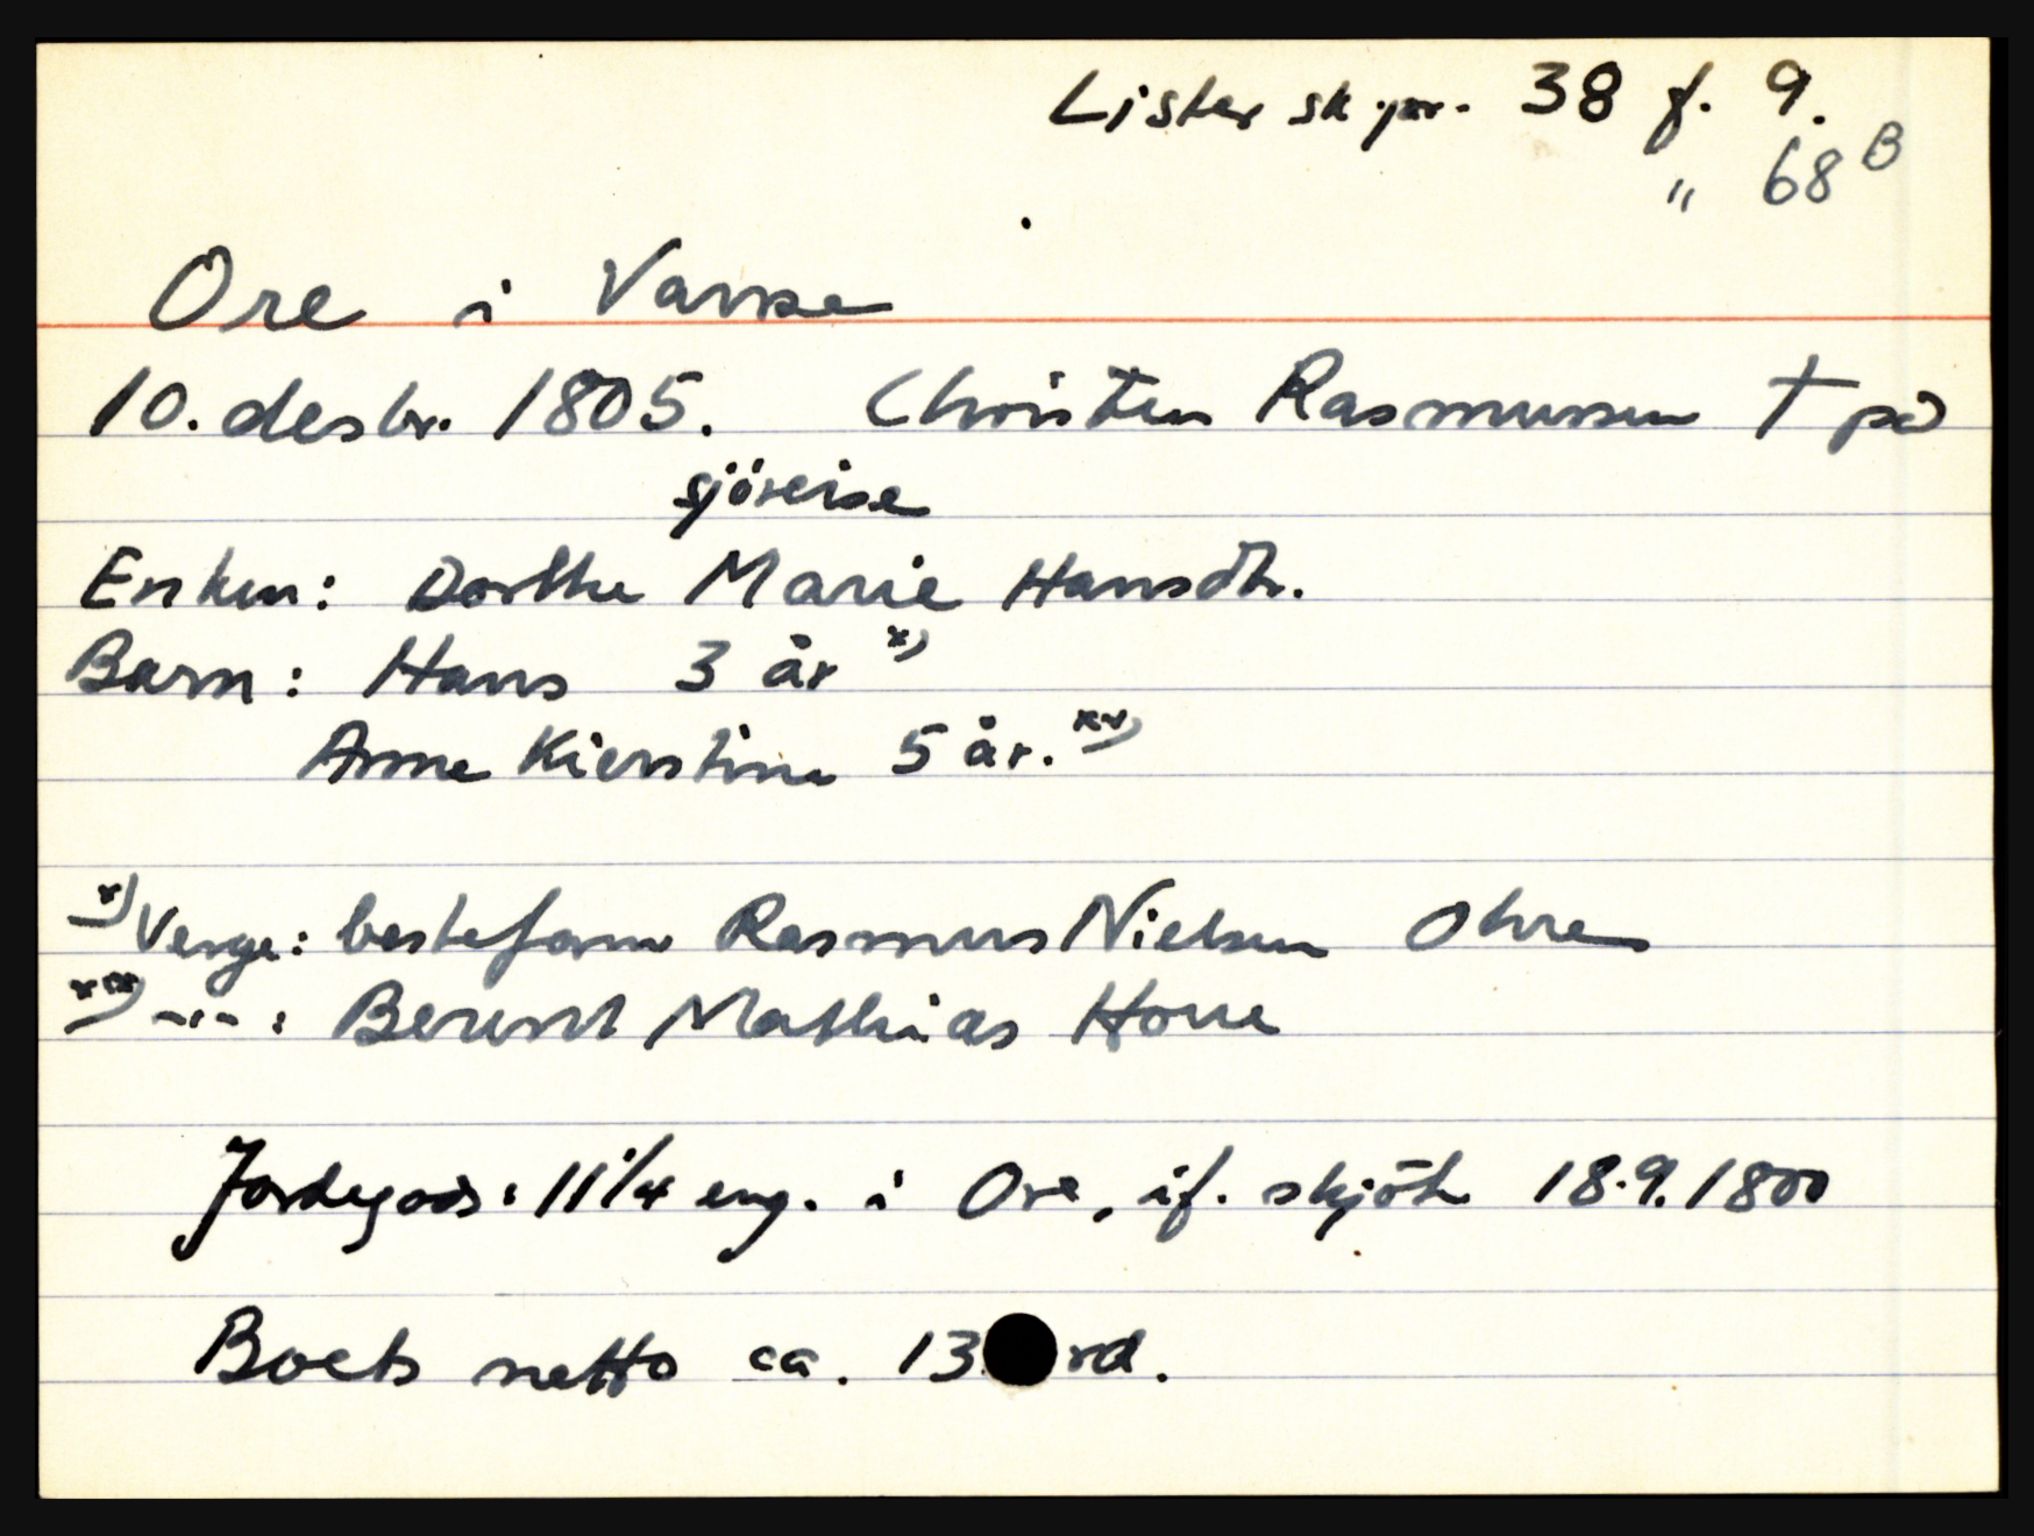 Lister sk.pr. 38 f. 9.
" 68 B
Ore i Vanse
10. desbr. 1805. Christen Rasmussen † på
sjöreise
Enken: Dorthe Marie Hansdtr.
Barn: Hans 3 år x)
Anne Kierstine 5 år. xx)
x) Verge: bestefaren Rasmus Nielsen Ohre
xx) -"- : Berent Mathias Houe
Jordegods: 11 1/4 eng. i Ore, if. skjöte 18.9.1800
Boets netto ca. 13 rd.